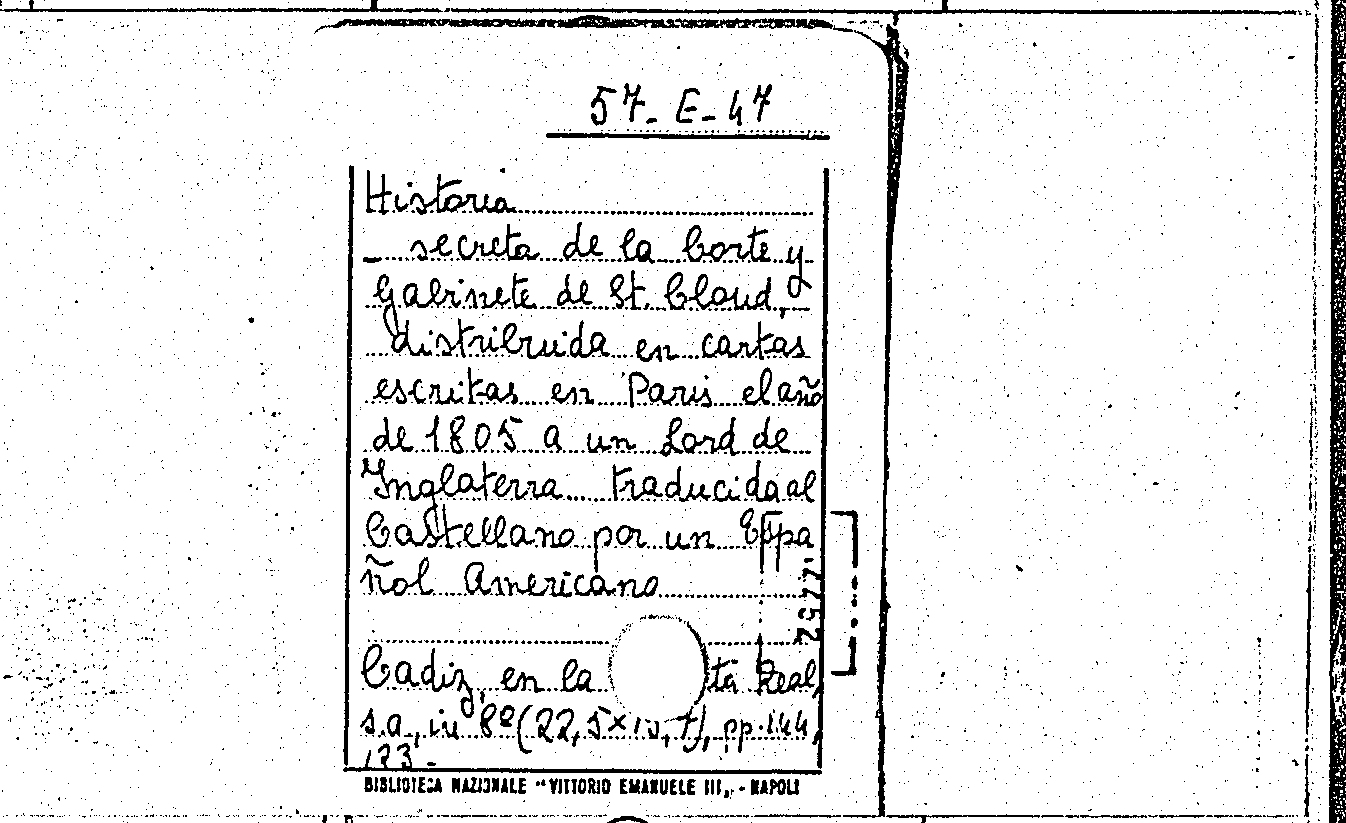 57-E-47
Historia
- secreta de la Corte y
Gabinete de St. Cloud,
distribuida en cartas
escritas en Paris el año
de 1805 a un Lord de
Inglaterra traducida al
Castellano por un Espa
ñol Americano
Cadiz, en la ta Real,
s.a., in 8º (22,5x , pp. 144,
173.
BIBLIOTECA NAZIONALE "VITTORIO EMANUELE III„ - NAPOLI